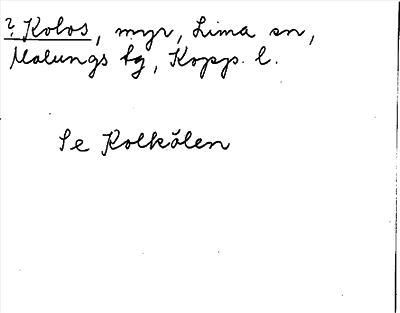 ? Kolos, myr, Lima sn,
Malungs tg, Kopp. l.
Se Kolkölen